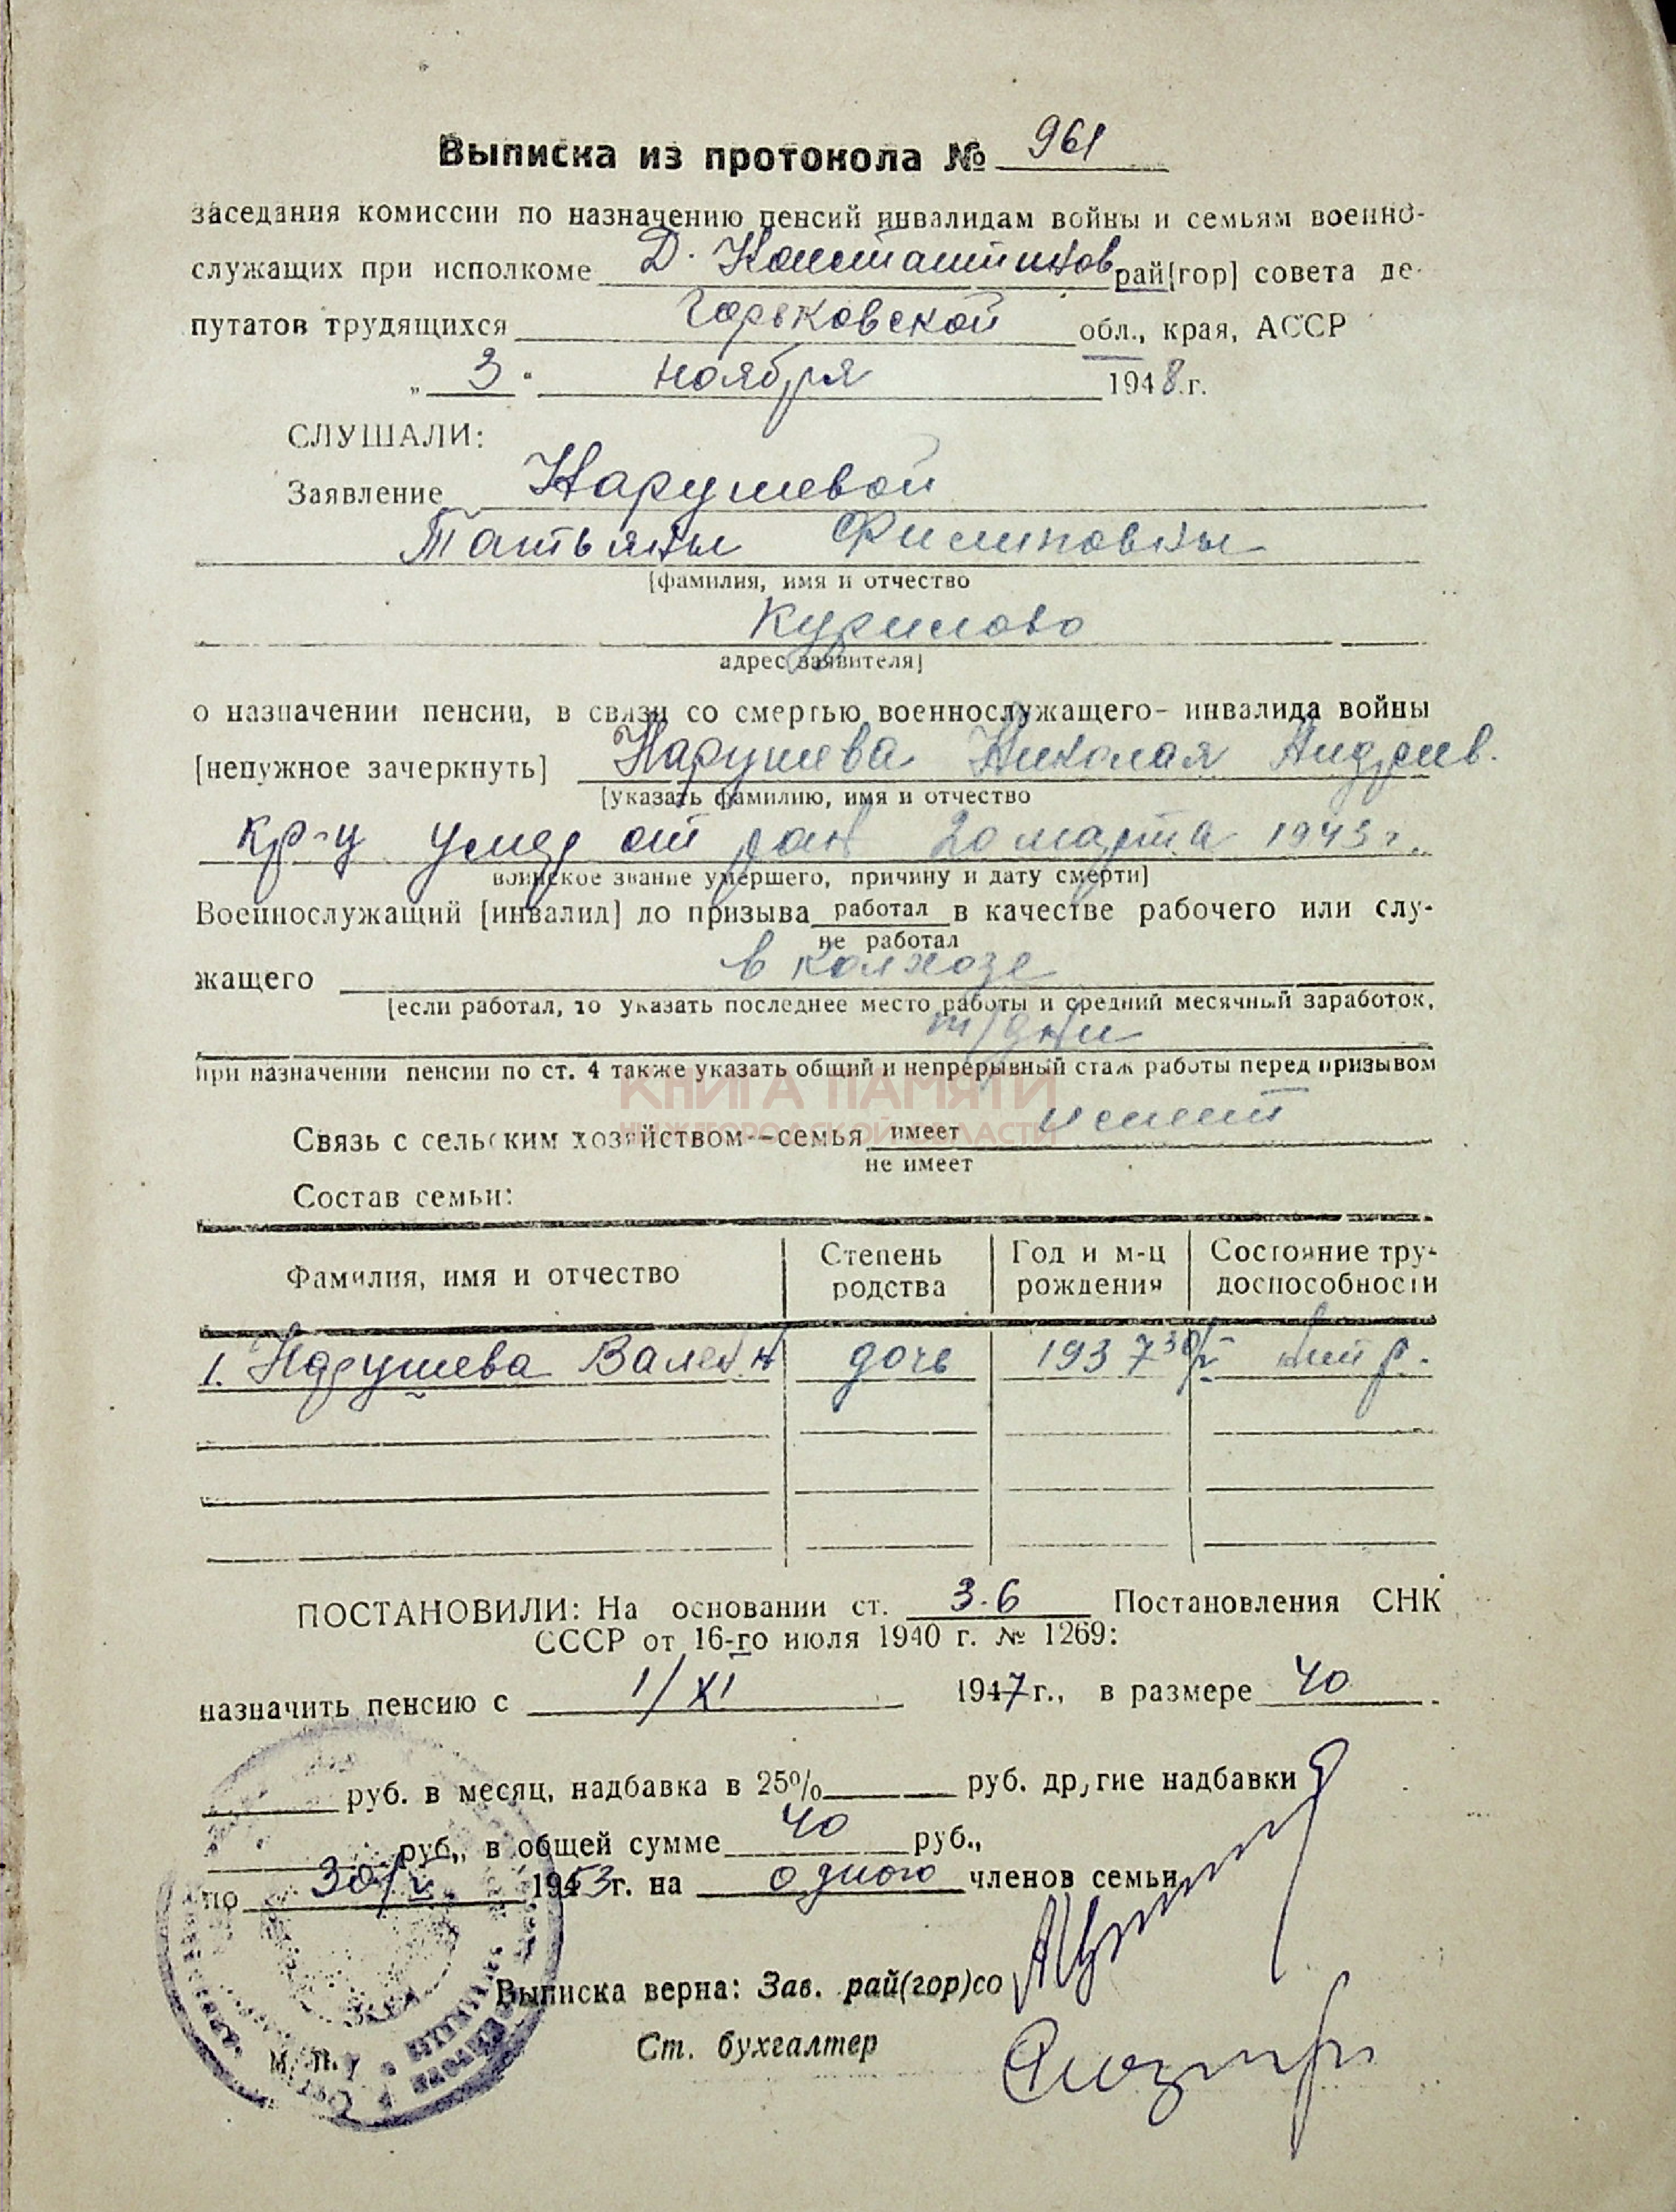 Выписка из протокола № 961
заседания комиссии по назначению пенсий инвалидам войны и семьям военно-
служащих при исполкоме Д. Константинов рай[гор] совета де-
путатов трудящихся Горьковской обл., края, АССР
„ 3 " ноября 1948 г.
СЛУШАЛИ:
Заявление Нарушевой
Татьяны Филиповны
[фамилия, имя и отчество
Курилово
адрес заявителя]
о назначении пенсии, в связи со смертью военнослужащего- инвалида войны
[ненужное зачеркнуть] Нарушева Николая Андреев.
[указать фамилию, имя и отчество
кр-ц умер от ран 20 марта 1943 г.
воинское звание умершего, причину и дату смерти]
Военнослужащий [инвалид] до призыва работал в качестве рабочего или слу-
не работал
жащего в колхозе
[если работал, то указать последнее место работы и средний месячный заработок,
т/дни
при назначении пенсии по ст. 4 также указать общий и непрерывный стаж работы перед призывом
КНИГА ПАМЯТИ
НИЖЕГОРОДСКОЙ ОБЛАСТИ
Связь с сельским хозяйством--семья имеет имеет
не имеет
Состав семьи:
Фамилия, имя и отчество Степень родства Год и м-ц рождения Состояние тру-доспособности
1. Нарушева Вален дочь 1937 30/V- р.
ПОСТАНОВИЛИ: На основании ст. 3-6 Постановления СНК
СССР от 16-го июля 1940 г. № 1269:
назначить пенсию с 1/XI 1947 г., в размере 40
руб. в месяц, надбавка в 25% руб. другие надбавки
руб., в общей сумме 40 руб.,
по 30/V 1953 г. на одного членов семьи
Выписка верна: Зав. рай(гор)со
Ст. бухгалтер
М. П.